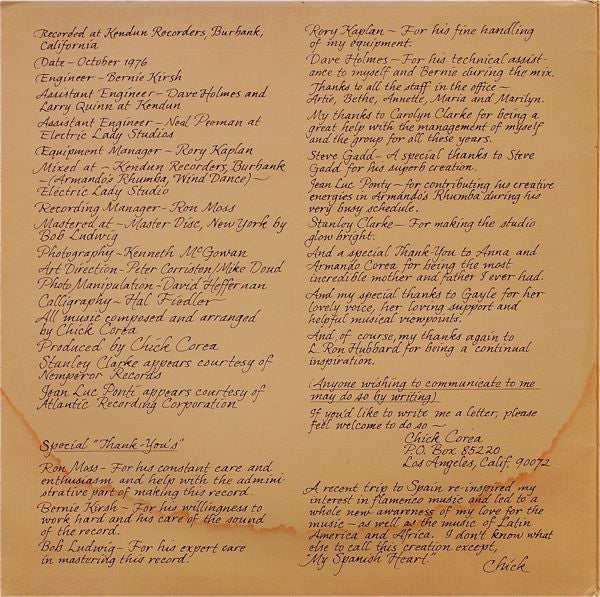 Recorded at Kendun Recorders, Burbank,
California
Date ~ October 1976
Engineer - Bernie Kirsh
Assistant Engineer - Dave Holmes and
Larry Quinn at Kendun
Assistant Engineer ~ Neal Peoman at
Electric Lady Studios
Equipment Manager ~ Rory Kaplan
Mixed at ~ Kendun Recorders, Burbank
~ (Armando's Rhumba, Wind Dance) ~
Electric Lady Studio
Recording Manager - Ron Moss
Mastered at ~ Master Disc, New York by
Bob Ludwig
Photography ~ Kenneth McGowan
Art Direction - Peter Corriston/Miko Doud
Photo Manipulation - David Heffernan
Calligraphy ~ Hal Fiedler
All music composed and arranged
by Chick Corea
Produced by Chick Corea
Stanley Clarke appears courtesy of
Nemperor Records
Jean Luc Ponti appears courtesy of
Atlantic Recording Corporation
Special "Thank-You's"
Ron Moss - For his constant care and
enthusiasm and help with the admini-
strative part of making this record.
Bernie Kirsh - For his willingness to
work hard and his care of the sound
of the record.
Bob Ludwig - For his expert care
in mastering this record.
Rory Kaplan ~ For his fine handling
of my equipment.
Dave Holmes - For his technical assist-
ance to myself and Bernie during the mix.
Thanks to all the staff in the office ~
Artie, Bethe, Annette, Maria and Marilyn.
My thanks to Carolyn Clarke for being a
great help with the management of myself
and the group for all these years.
Steve Gadd - A special thanks to Steve
Gadd for his superb creation.
Jean Luc Ponty ~ for contributing his creative
energies in Armando's Rhumba during his
very busy schedule.
Stanley Clarke - For making the studio
glow bright.
And a special Thank-You to Anna and
Armando Corea for being the most
incredible mother and father I ever had.
And my special thanks to Gayle for her
lovely voice, her loving support and
helpful musical viewpoints.
And, of course, my thanks again to
L. Ron Hubbard for being a continual
inspiration.
(Anyone wishing to communicate to me
may do so by writing)
If you'd like to write me a letter, please
feel welcome to do so ~
Chick Corea
P.O. Box 85220
Los Angeles, Calif. 90072
A recent trip to Spain re-inspired my
interest in flamenco music and led to a
whole new awareness of my love for the
music ~ as well as the music of Latin
America and Africa. I don't know what
else to call this creation except,
"My Spanish Heart."
Chick